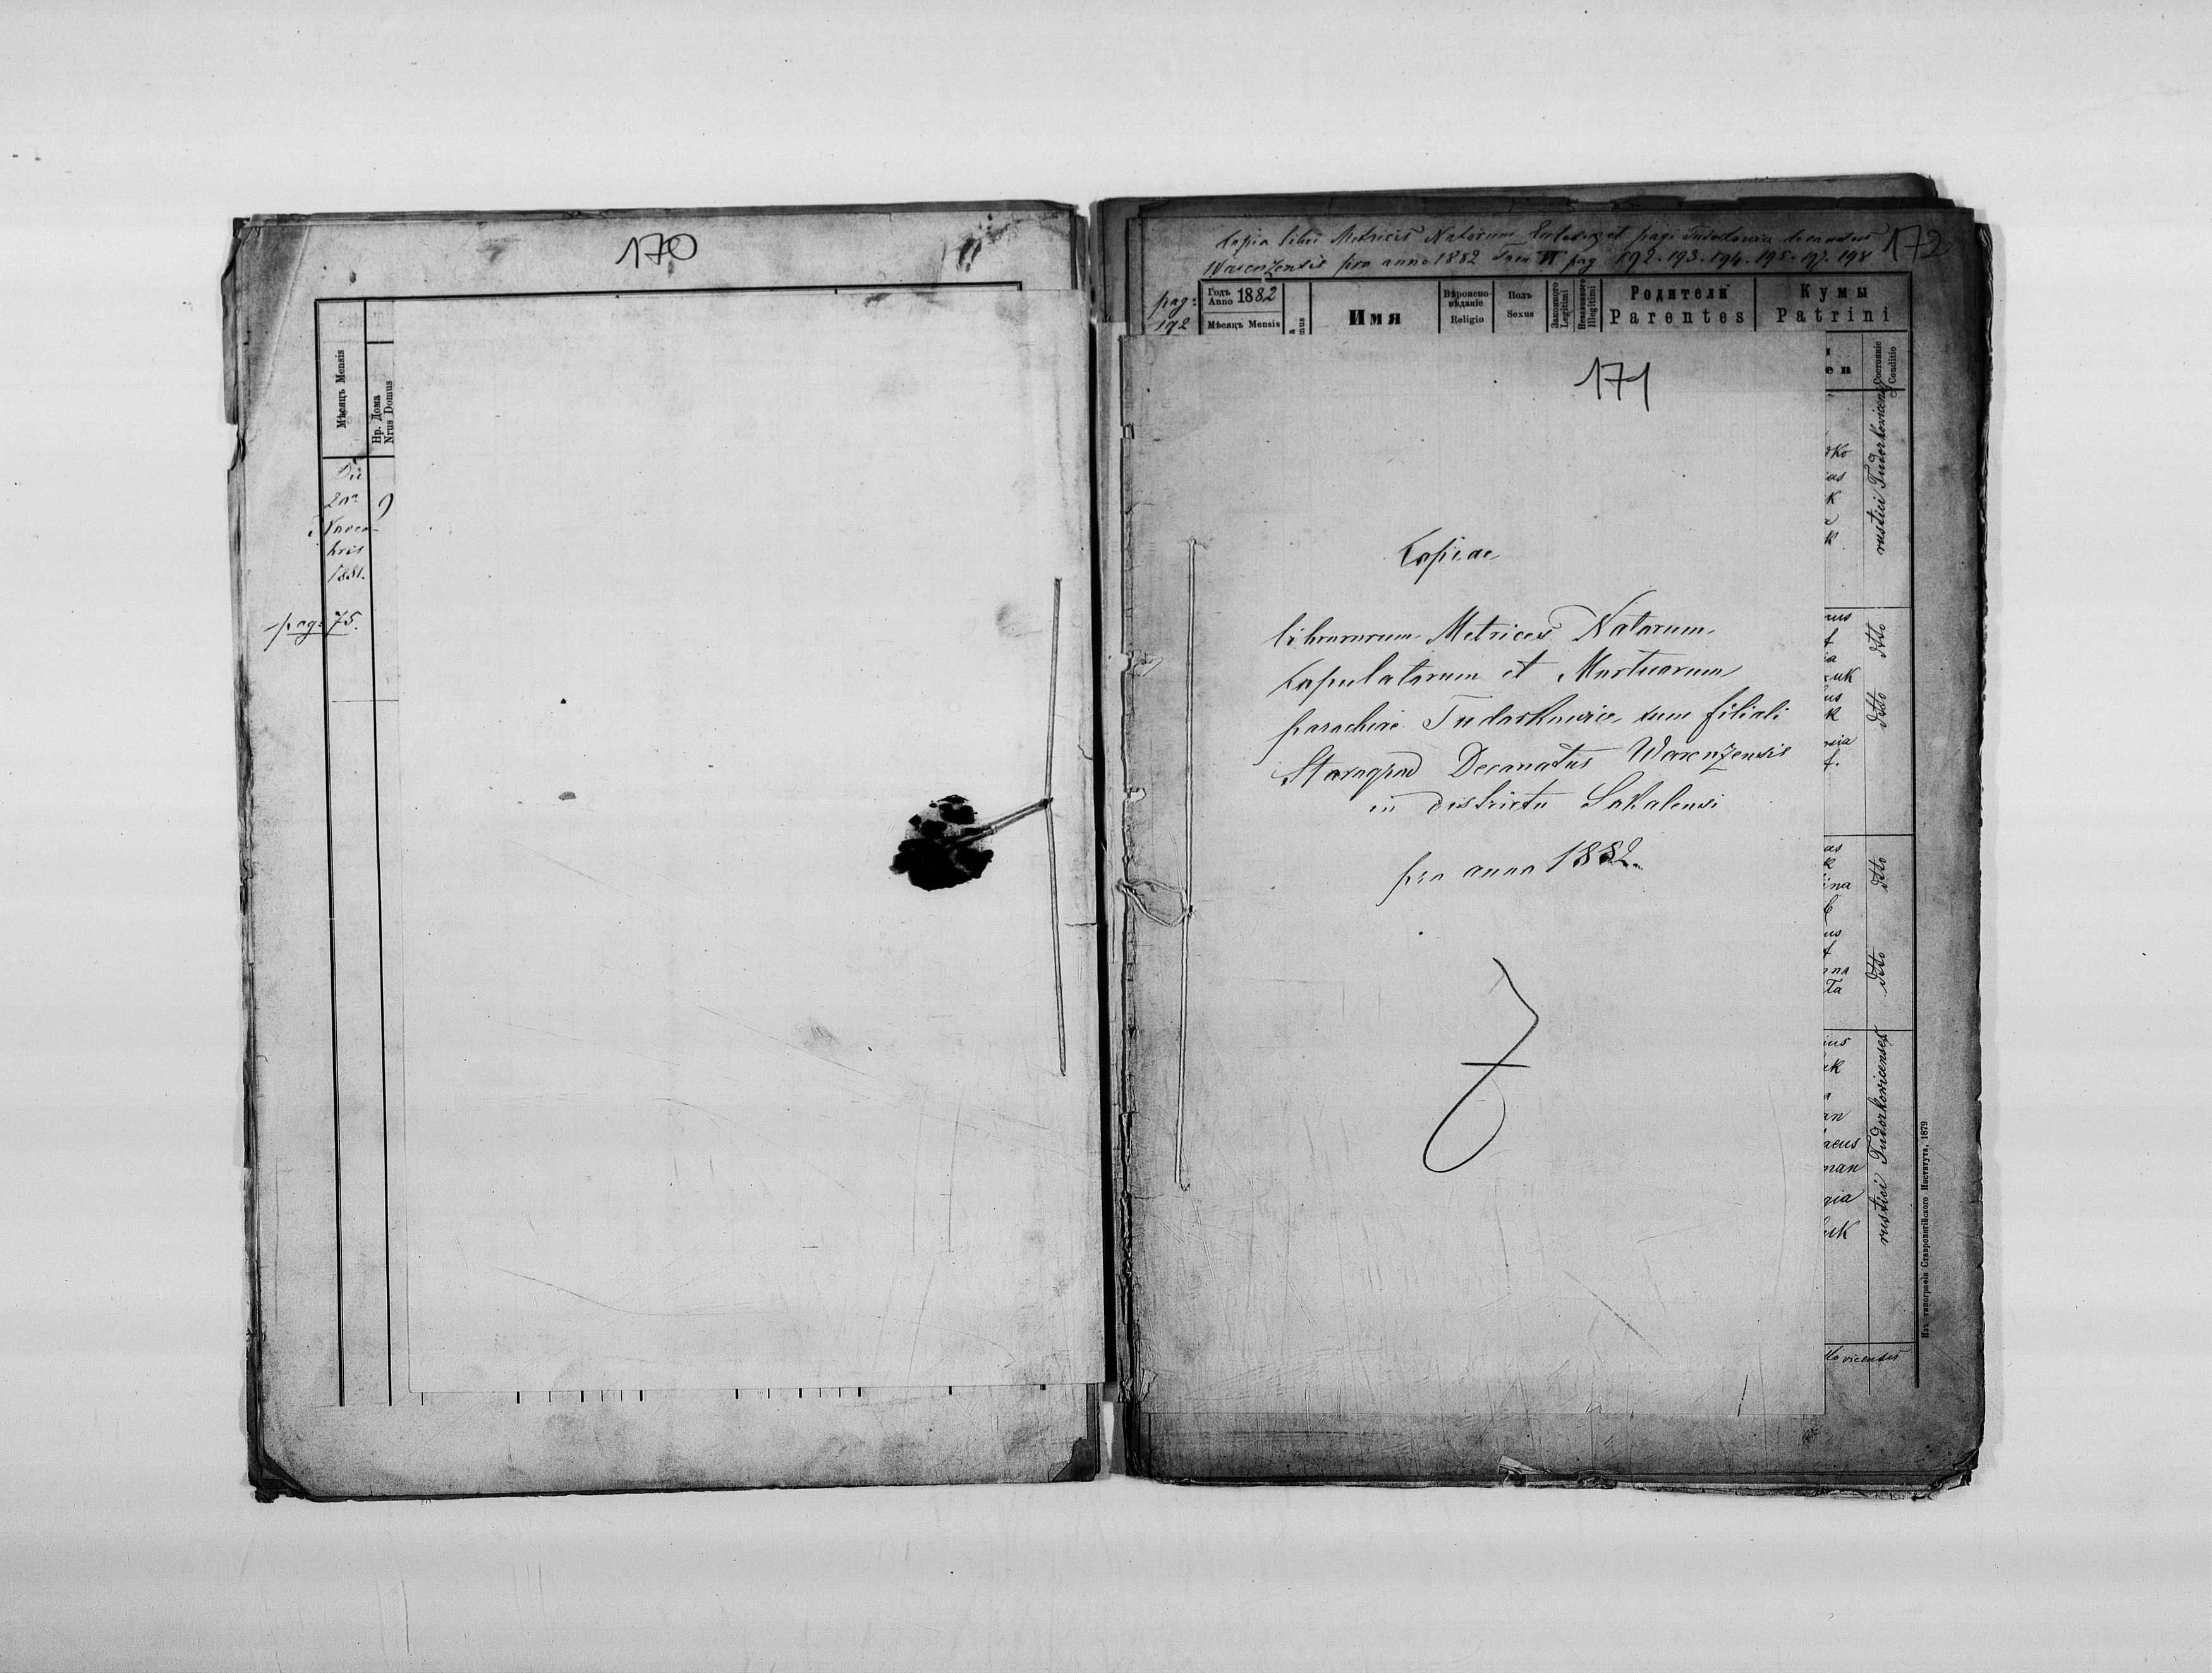 170
Мѣсяцъ Mensis
Нр. Дома
Nrus Domus
Die
20a 9
Novem-
bris
1881.
pag: 75.
172
Copia libri Metrices Natorum Eccles. et pagi Tudorkowice decanatus
Warenzensis pro anno 1882 Tom VI pag 192. 193. 194. 195. 197. 198
pag:
192
Годъ
Anno 1882
Мѣсяцъ Mensis
mus
Имя
Вѣроиспо-
вѣданіе
Religio
Полъ
Sexus
Законного
Legitimi
Незаконного
Illegitimi
Родители
Parentes
Кумы
Patrini
en
Состояніе
Conditio
171
Copiae
librorum Metrices Natorum
Copulatorum et Mortuorum
parochiae Tudorkowice cum filiali
Starogrod Decanatus Warenzensis
in districtu Sokalensi
pro anno 1882.
rustici Tudorkovicenses
ditto
ditto
ditto
ditto
rustici Tudorkovicenses
kovicensis
Изъ типографіи Ставропигійского Института, 1879